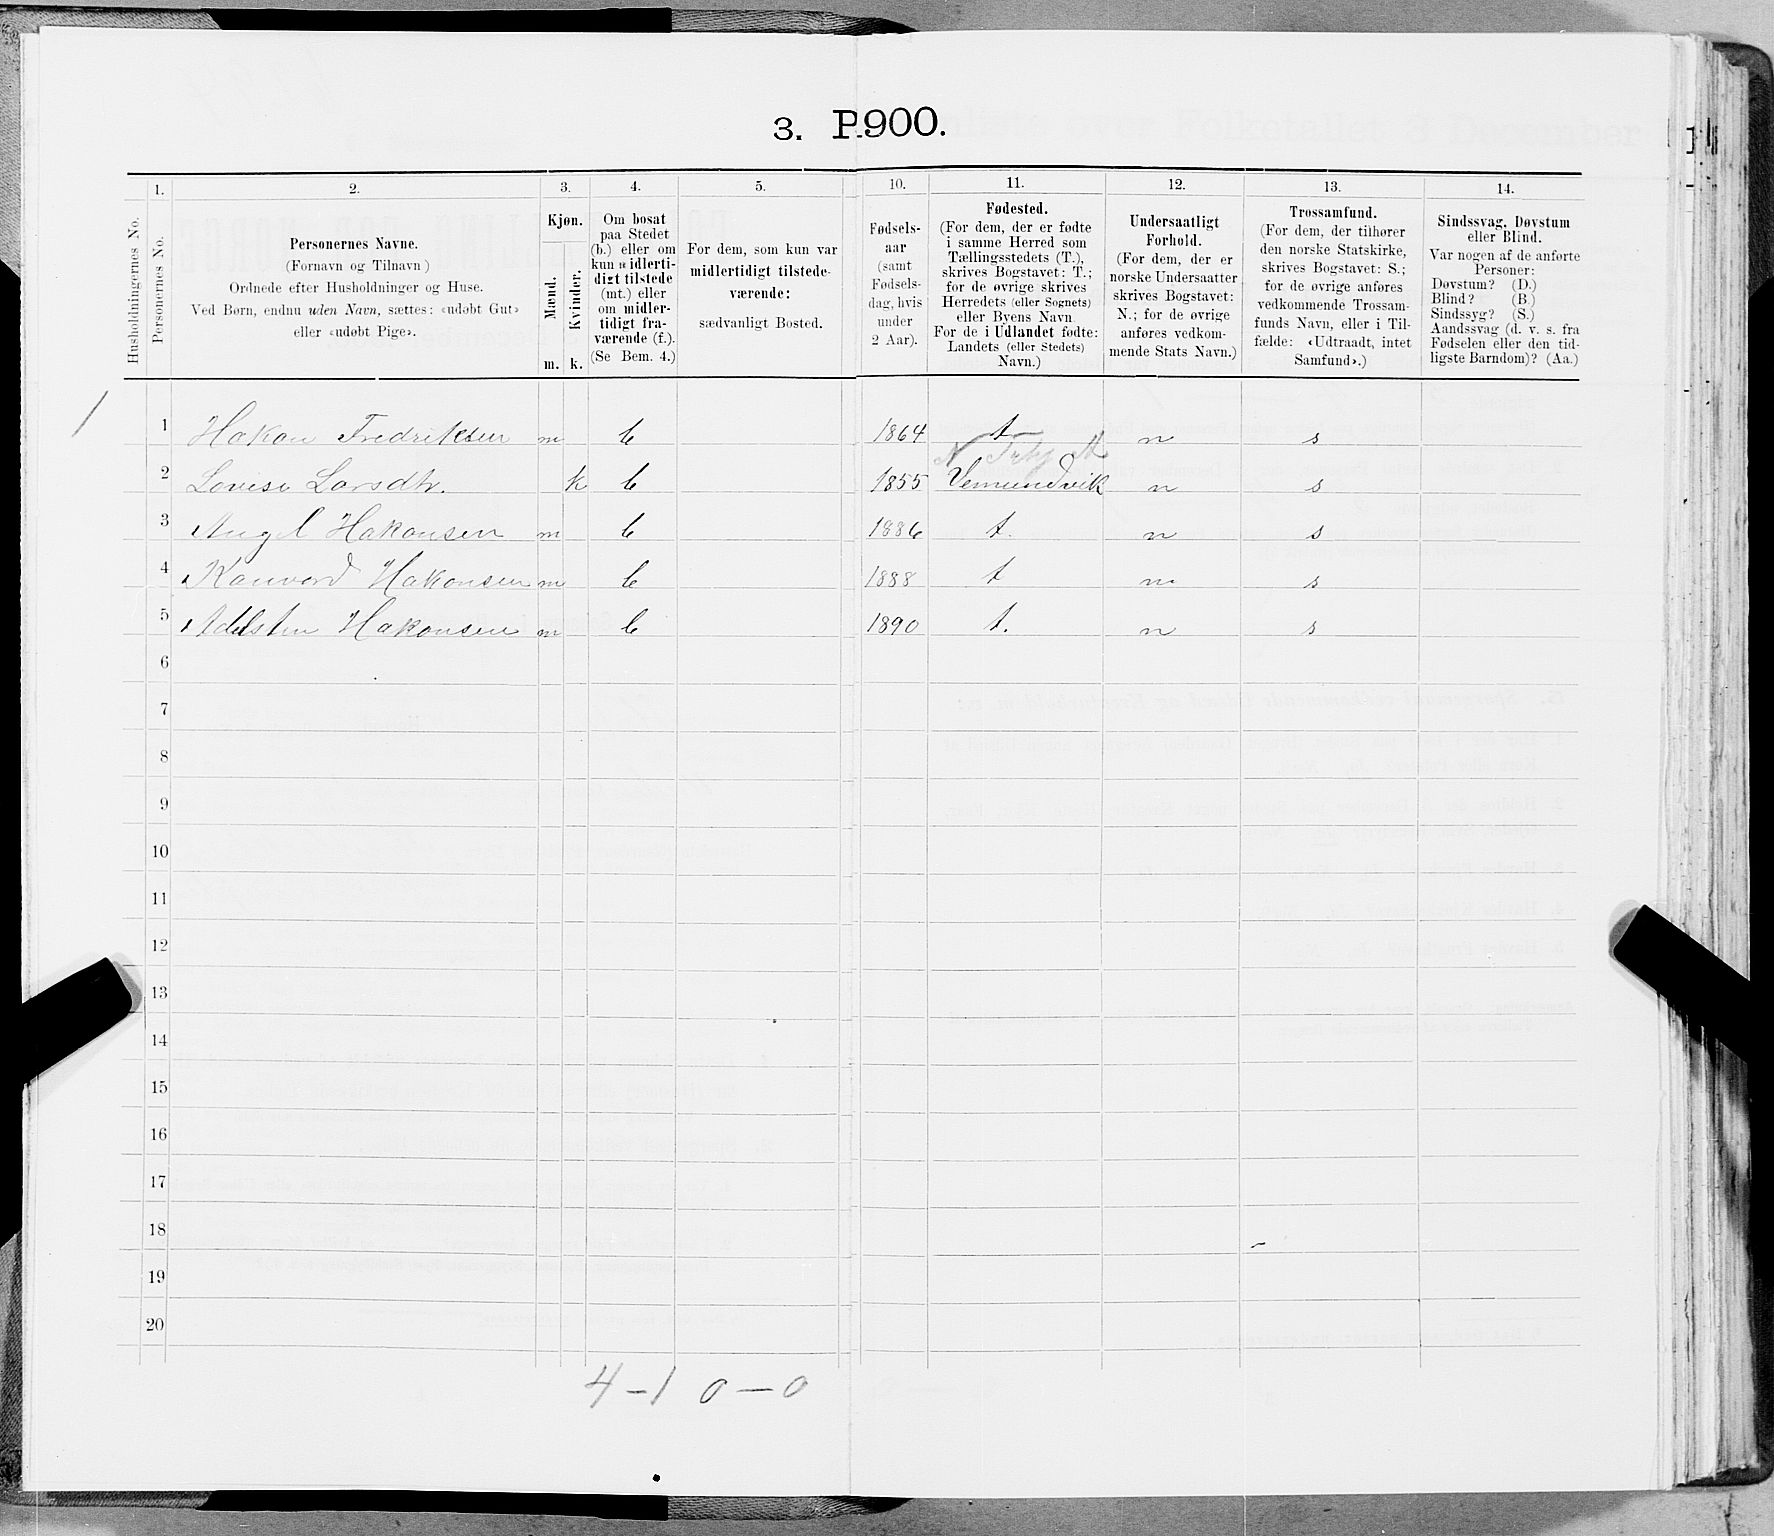 3. P.900.
1. 2. 3. 4. 5. 10. 11. 12. 13. 14.
Husholdningernes No.
Personernes No.
Personernes Navne.
(Fornavn og Tilnavn)
Ordnede efter Husholdninger og Huse.
Ved Børn, endnu uden Navn, sættes: «udøbt Gut»
eller «udøbt Pige».
Kjøn.
Mænd.
Kvinder.
m. k.
Om bosat
paa Stedet
(b.) eller om
kun midlerti-
digt tilstede
(mt.) eller
om midler-
tidigt fra-
værende (f.).
(Se Bem. 4.)
For dem, som kun var
midlertidigt tilstede-
værende:
sædvanligt Bosted.
Fødsels-
aar
(samt
Fødsels-
dag, hvis
under
2 Aar).
Fødested.
(For dem, der er fødte
i samme Herred som
Tællingsstedets (T.),
skrives Bogstavet: T.;
for de øvrige skrives
Herredets (eller Sognets)
eller Byens Navn
For de i Udlandet fødte:
Landets (eller Stedets)
Navn.)
Undersaatligt
Forhold.
(For dem, der er
norske Undersaatter
skrives Bogstavet:
N.; for de øvrige
anføres vedkom-
mende Stats Navn.)
Trossamfund.
(For dem, der tilhører
den norske Statskirke,
skrives Bogstavet: S.;
for de øvrige anføres
vedkommende Trossam-
funds Navn, eller i Til-
fælde: «Udtraadt, intet
Samfund».)
Sindssvag, Døvstum
eller Blind.
Var nogen af de anførte
Personer:
Døvstum? (D.)
Blind? (B.)
Sindssyg? (S.)
Aandssvag (d. v. s. fra
Fødselen eller den tid-
ligste Barndom)? (Aa.)
1 1 Hakon Fredriksen m b 1864 t n s
N Trhj A
2 Lovise Larsdtr. k b 1855 Vemundvik n s
3 Angel Hakonsen m b 1886 t. n s
4 Konvord Hakonsen m b 1888 t n s
5 Adelsten Hakonsen m b 1890 t. n s
6
7
8
9
10
11
12
13
14
15
16
17
18
19
20
4 – 1 0 – 0